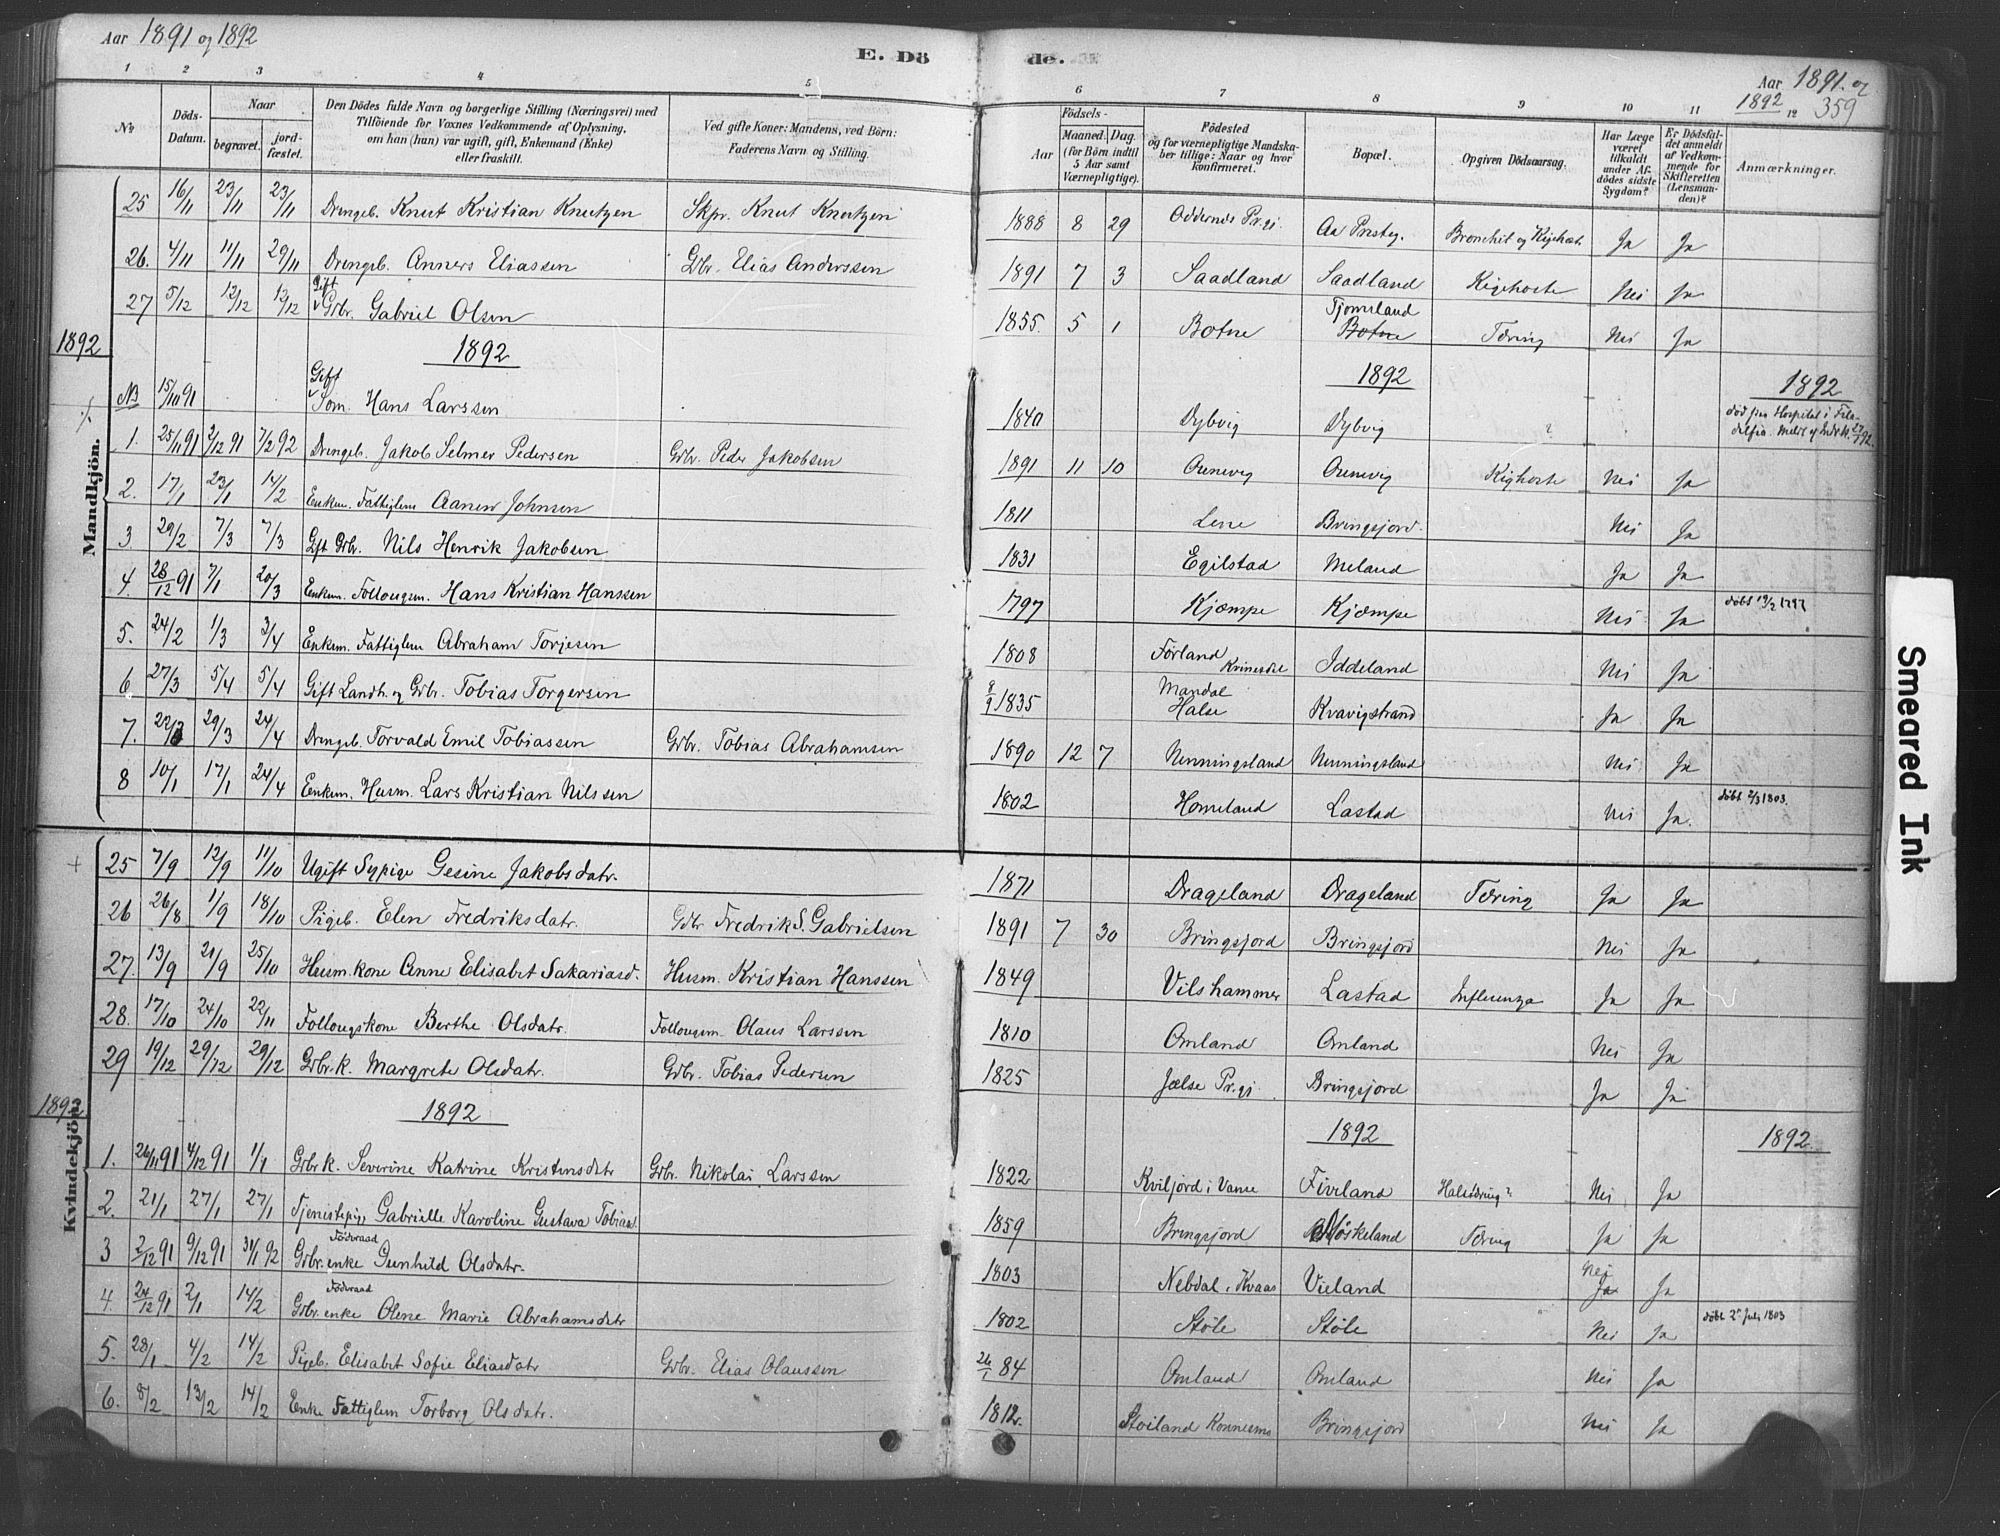 Aar 1891 og 1892
E. Dö
de.
Aar 1891 og 1892
359
1 2 3 4 5 6 7 8 9 10 11 12
No
Döds-Datum.
Naar begravet. jordfæstet.
Den Dödes fulde Navn og borgerlige Stilling (Næringsvei) med Tilföiende for Voxnes Vedkommende af Oplysning, om han (hun) var ugift, gift, Enkemand (Enke) eller fraskilt.
Ved gifte Koner: Mandens, ved Börn: Faderens Navn og Stilling.
Födsels-
Aar
Maaned. Dag. (for Börn indtil 5 Aar samt Værnepligtige).
Födested og for værnepligtige Mandskaber tillige: Naar og hvor konfirmeret.
Bopæl.
Opgiven Dödsaarsag.
Har Læge været tilkaldt under Afdödes sidste Sygdom?
Er Dödsfaldet anmeldt af Vedkommende for Skifteretten (Lensmanden)?
Anmærkninger.
Mandkjön.
25 16/11 23/11 23/11 Drengeb. Knut Kristian Knutzen Skpr. Knut Knutzen 1888 8 29 Oddernes Pr.gj. Aa Prstg. Bronchit og Kighost Ja Ja
26. 4/11 11/11 29/11 Drengeb. Anners Eliassen Grbr. Elias Anderssen 1891 7 3 Saadland Saadland Kighoste Nei Ja
27 5/12 12/12 12/12 Gift Grbr. Gabriel Olsen 1855. 5 1 Botne Tjomsland Botne Tæring Nei Ja
1892 1892 1892 1892
NB 15/10 91 Gift Søm. Hans Larssen 1840 Dybvig Dybvig ? død paa Hospital i Filadelfia. Meldt af Indr.
1. 25/11 91 2/12 91 7/2 92 Drengeb. Jakob Selmer Pedersen Grbr. Peder Jakobsen 1891 11 10 Orenevig Orenevig Kighoste Nei Ja
2. 17/1 23/1 14/2 Enkem. Fattiglem Aanen Johnsen 1811 Lene Bringsjord. Nei Ja
3 29/2 7/3 7/3 Gift Grbr. Nils Henrik Jakobsen 1831 Egilstad Meland Ja Ja
4. 28/12 91 7/1 20/3 Enkem. Follougsm. Hans Kristian Hanssen 1797 Kjæmpe Kjæmpe Nei Ja døbt 19/2 1797
5. 24/2 1/3 3/4 Enkem. Fattiglem Abraham Torjesen 1808 Førland Kvinesdal Iddeland Nei Ja
6 27/3 5/4 5/4 Gift Landh. og Grbr. Tobias Torgersen 8/9 1835 Mandal Halse Kvavigstrand Ja Ja
7. 22/3 29/3 24/4 Drengeb. Torvald Emil Tobiassen Grbr. Tobias Abrahamsen 1890 12 7 Nenningsland Nenningsland Nei Ja
8 10/1 17/1 24/4 Enkem. Husm. Lars Kristian Nilssen 1802 Homeland Lastad Nei Ja. døbt 2/3 1803.
Kvindekjön
25 7/9 12/9 11/10 Ugift Sypige Gesine Jakobsdatr. 1871 Drageland Drageland Tæring Ja Ja
26 26/8 1/9 18/10 Pigeb. Elen Fredriksdatr. Grbr Fredrik S. Gabrielsen 1891 7 30 Bringsjord Bringsjord Nei Ja
27. 13/9 21/9 25/10 Husm.kone Anne Elisabet Sakariasd. Husm. Kristian Hanssen 1849 Vilshammer Lastad Influenza Ja Ja
28. 17/10 24/10 22/11 Follougskone Berthe Olsdatr. Follougsm. Olaus Larssen 1810 Omland Omland Nei Ja
29 19/12 29/12 29/12 Grbr.k. Margrete Olsdatr. Grbr. Tobias Pedersen 1825 Jælse Pr.gj. Bringsjord Ja Ja
1892 1892 1892 1892
1. 26/11 91 4/12 91 1/1 Grbr k. Severine Katrine Kristensdatr Grbr. Nikolai Larssen 1822 Kviljord i Vanse Fiveland Halsbring? Nei Ja
2. 21/1 27/1 27/1 Tjenestepige Gabrielle Karoline Gustava Tobiasd. 1859 Bringsjord Høskeland Tæring Ja Ja
3 2/12 91 9/12 91 31/1 92 Føderaad Grbr. enke Gunhild Olsdatr. 1803 Nebdal i Kvaas Vieland Nei Ja Ja
4. 24/12 91 2/1 14/2 Føderaad Grbr. enke Olene Marie Abrahamsdatr 1802 Støle Støle Nei Ja døbt 2. 1803
5. 28/1 4/2 14/2 Pigeb. Elisabet Sofie Eliasdatr Grbr. Elias Olaussen 26/1 84 Omland Omland Nei Ja
6. 5/2 13/2 14/2 Enke Fattiglem Torborg Olsdatr. 1812. Støiland Konnesmo Bringsjord Nei Ja
Smeared Ink